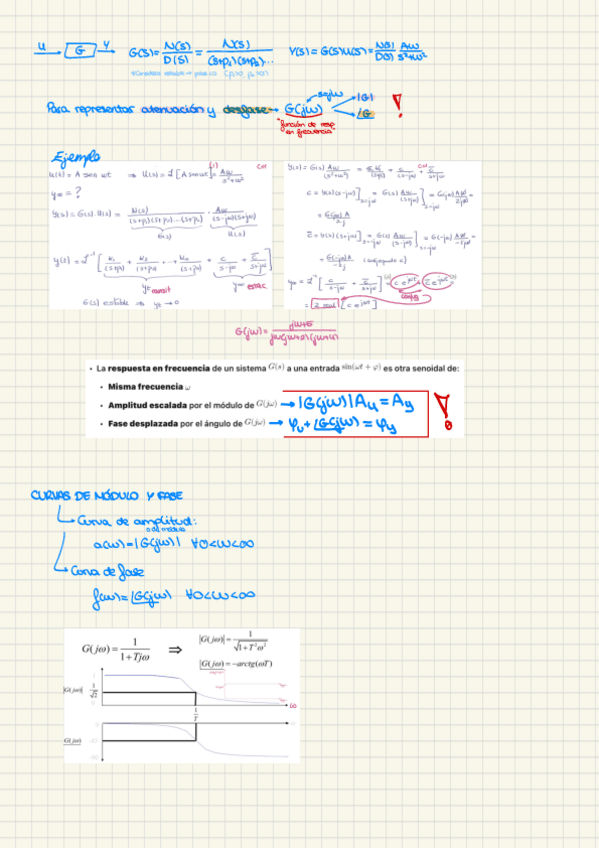 U G Y G(s) = N(s)/D(s) = N(s)/((s+p₁)(s+p₂)... Y(s) = G(s)U(s) = N(s)/D(s) Aω/(s²+ω²)
Para representar atenuación y desfase → G(jω) s=jω |G|
∠G
"función de resp en frecuencia"
Ejemplo
u(t) = A sen ωt ⇒ U(s) = ℒ[A sen ωt] = Aω/(s²+ω²)
y∞ = ?
Y(s) = G(s)·U(s) = N(s)/((s+p₁)(s+p₂)...(s+pₙ)) · Aω/((s-jω)(s+jω))
G(s) U(s)
y(t) = ℒ⁻¹[k₁/(s+p₁) + k₂/(s+p₂) + ... + kₙ/(s+pₙ) + c/(s-jω) + c̄/(s+jω)]
G(s) estable ⇒ yt → 0
c = Y(s)(s-jω)]s=jω = G(s) Aω/(s+jω)]s=jω = G(jω) Aω/2jω =
= G(jω)A/2j
c̄ = Y(s)(s+jω)]s=-jω = G(s) Aω/(s-jω)]s=-jω = G(-jω) Aω/-2jω =
y∞ = ℒ⁻¹[c/(s-jω) + c̄/(s+jω)] = c e^jωt + c̄ e^-jωt =
• La respuesta en frecuencia de un sistema G(s) a una entrada sin(ωt + φ) es otra senoidal de:
• Misma frecuencia ω
• Amplitud escalada por el módulo de G(jω) → |G(jω)|Au = Ay
• Fase desplazada por el ángulo de G(jω) → φu + ∠G(jω) = φy
CURVAS DE MÓDULO Y FASE
Curva de amplitud:
a(ω) = |G(jω)| ∀0<ω<∞
Curva de fase
f(ω) = ∠G(jω) ∀0<ω<∞
G(jω) = 1/(1+Tjω) ⇒ |G(jω)| = 1/√(1+T²ω²)
∠G(jω) = -arctg(ωT)
|G(jω)| 1 1/√2 0
ω
1/T
∠G(jω) 0 -45 -90